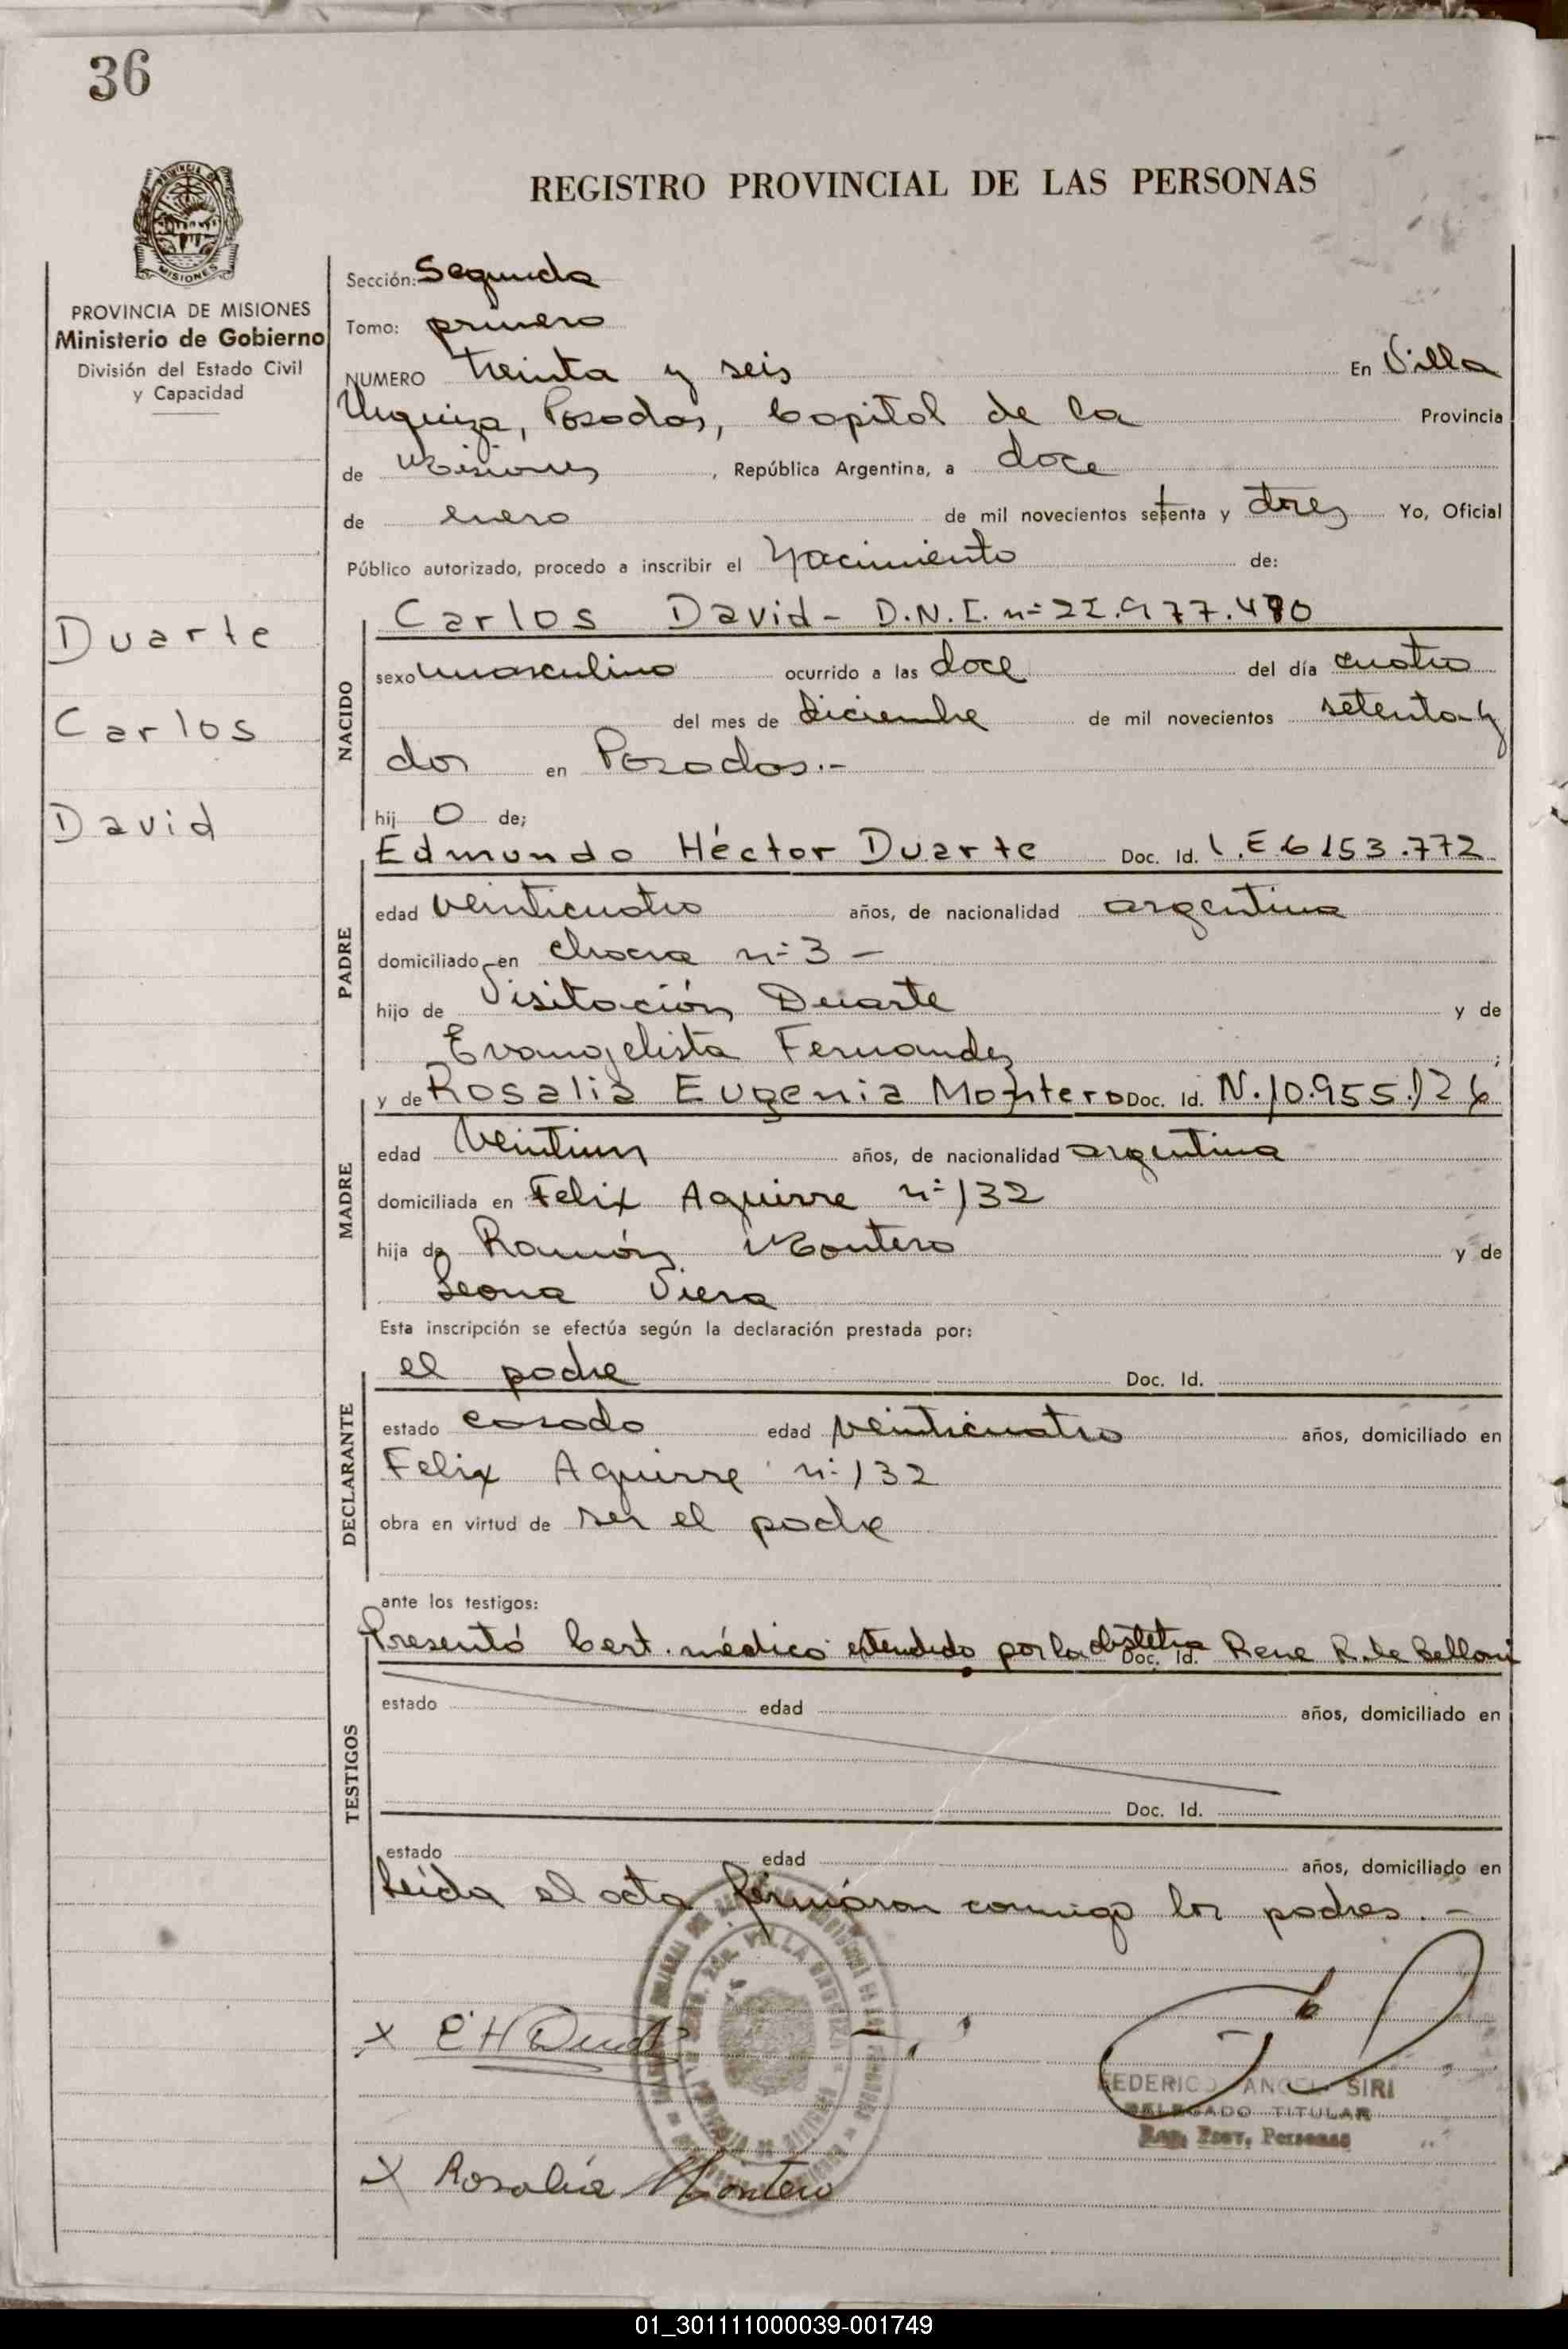 36
REGISTRO PROVINCIAL DE LAS PERSONAS
MISIONES
PROVINCIA DE MISIONES
Ministerio de Gobierno
División del Estado Civil
y Capacidad
Duarte
Carlos
David
Sección: Segunda
Tomo: primero
NUMERO treinta y seis En Villa
Urquiza, Posadas, Capital de la Provincia
de Misiones, República Argentina, a doce
de enero de mil novecientos setenta y tres Yo, Oficial
Público autorizado, procedo a inscribir el Nacimiento de:
NACIDO
Carlos David - D.N.I. nº 22.977.480
sexo masculino ocurrido a las doce del día cuatro
del mes de diciembre de mil novecientos setenta y
dos en Posadas.-
hij o de;
PADRE
Edmundo Héctor Duarte Doc. Id. L.E 6153.772
edad veinticuatro años, de nacionalidad argentina
domiciliado en chacra nº 3 -
hijo de Visitación Duarte y de
Evangelista Fernandez;
MADRE
y de Rosalia Eugenia Montero Doc. Id. N. 10.955.126
edad veintiun años, de nacionalidad argentina
domiciliada en Felix Aguirre nº 132
hija de Ramón Montero y de
Leona Viera
Esta inscripción se efectúa según la declaración prestada por:
DECLARANTE
el padre Doc. Id.
estado casado edad veinticuatro años, domiciliado en
Felix Aguirre nº 132
obra en virtud de ser el padre
ante los testigos:
TESTIGOS
Presentó Cert. médico extendido por la obstetra Doc. Id. Rene R. de Belloni
estado edad años, domiciliado en
Doc. Id.
estado edad años, domiciliado en
Leída el acta firmaron conmigo los padres. -
x E H Duarte
FEDERICO ANGEL SIRI
DELEGADO TITULAR
Reg. Prov. Personas
x Rosalia Montero
01_301111000039-001749